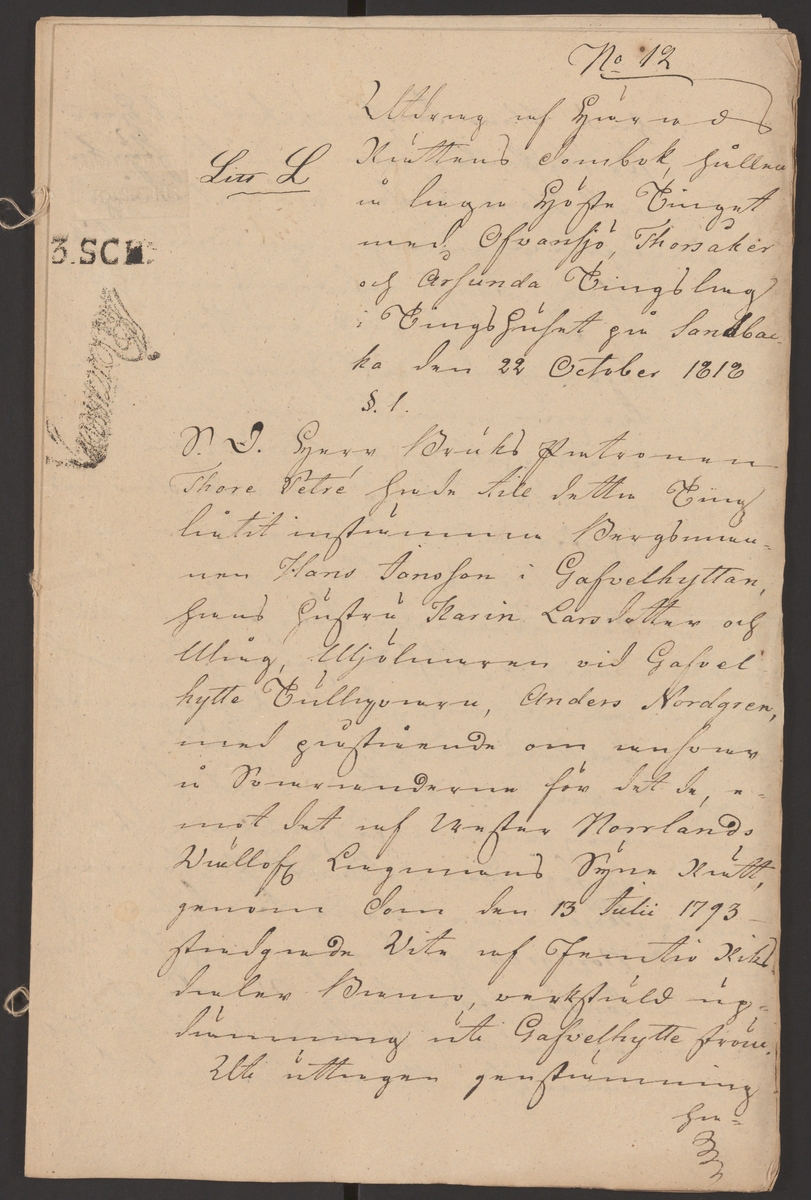 No 12
Utdrag af Härads
Rättens Dombok, hållen
Litt L
å laga Höste Tinget
med Ofvansjö, Thorsåker
3.SCH.
och Årsunda Tingslag
i Tingshuset på Sandbac-
ka den 22 October 1818
§. 1.
S. D. Herr Bruks Patronen
Thore Petré hade till detta Ting
låtit instämma Bergsman-
nen Hans Jansson i Gafvelhyttan,
hans hustru Karin Larsdotter och
Måg, Mjölnaren vid Gafvel
hytte Tullqvarn, Anders Nordgren,
med påstående om ansvar
å Svaranderne för det de, e-
mot det af Wester Norrlands
Wällofl Lagmans Syne Rätt,
genom Dom den 13 Julii 1793
stadgade Vite af Femtio Riks
daler Banco, verkstäld up-
dämning uti Gafvelhytte ström.
Uti uttagen genstämning
ha-